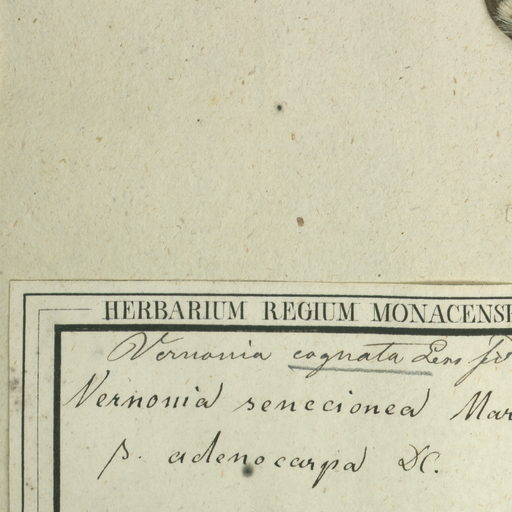 HERBARIUM REGIUM MONACENS
Vernonia cognata Less
Vernonia senecionea Mar
β. adenocarpa DC.